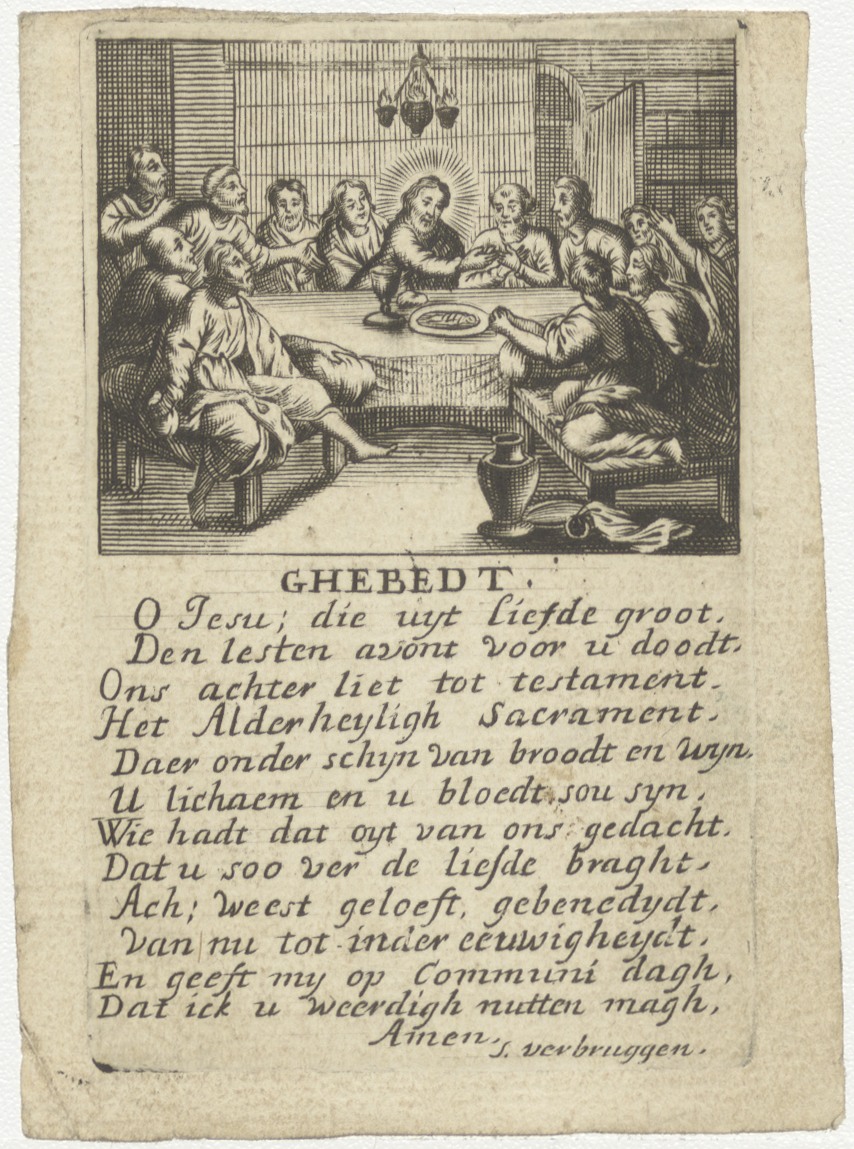 GHEBEDT.
O Jesu; die uyt liefde groot.
Den lesten avont voor u doodt.
Ons achter liet tot testament.
Het Alderheyligh Sacrament.
Daer onder schyn van broodt en wyn.
U lichaem en u bloedt sou syn.
Wie hadt dat oyt van ons gedacht.
Dat u soo ver de liefde braght.
Ach; weest geloeft, gebenedydt.
van nu tot inder eeuwigheydt.
En geeft my op Communi dagh,
Dat ick u weerdigh nutten magh,
Amen.
s. verbruggen.